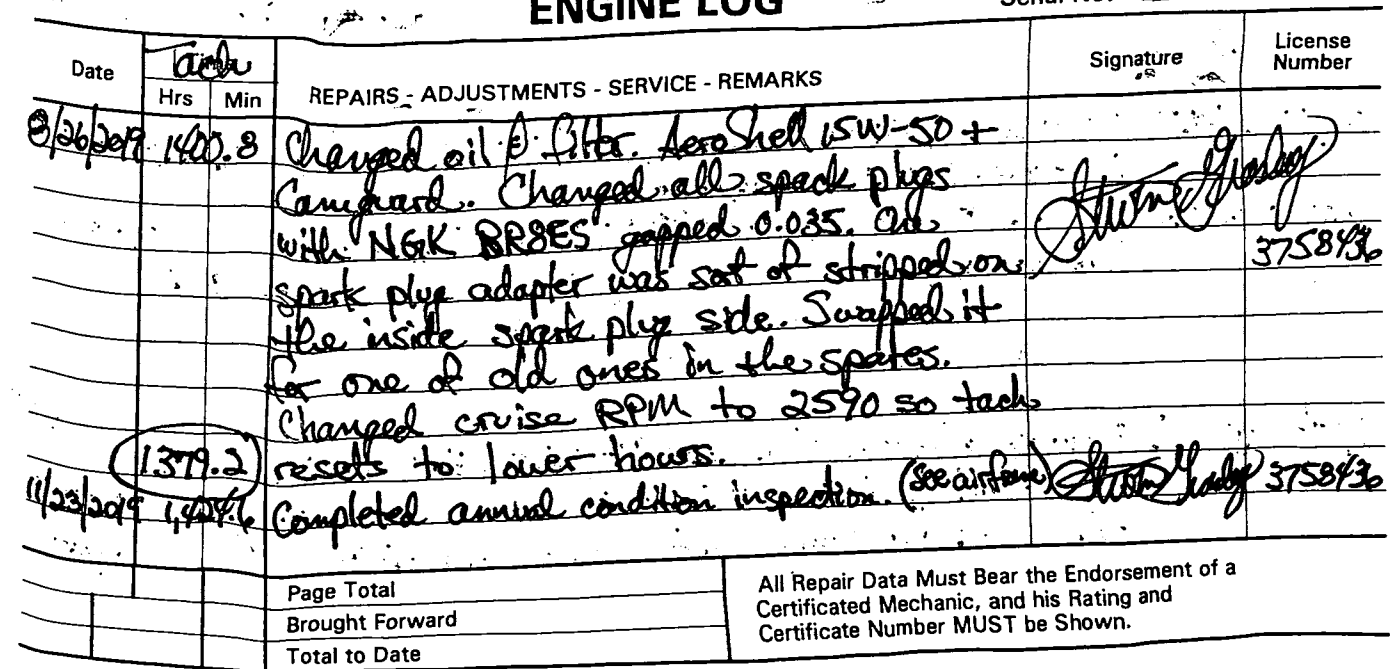 ENGINE LOG
Serial No.
Date Tach Signature License Number
Hrs Min REPAIRS - ADJUSTMENTS - SERVICE - REMARKS
8/26/2019 1400.8 Changed oil & filter. AeroShell 15W-50 +
Camguard. Changed all spark plugs
with NGK BR8ES gapped 0.035. One
3758436
spark plug adapter was sort of stripped on
the inside spark plug side. Swapped it
for one of old ones in the spares.
Changed cruise RPM to 2590 so tach
1379.2 resets to lower hours.
11/23/2019 1,424.6 Completed annual condition inspection. (see airframe) 3758436
Page Total
Brought Forward
Total to Date
All Repair Data Must Bear the Endorsement of a
Certificated Mechanic, and his Rating and
Certificate Number MUST be Shown.